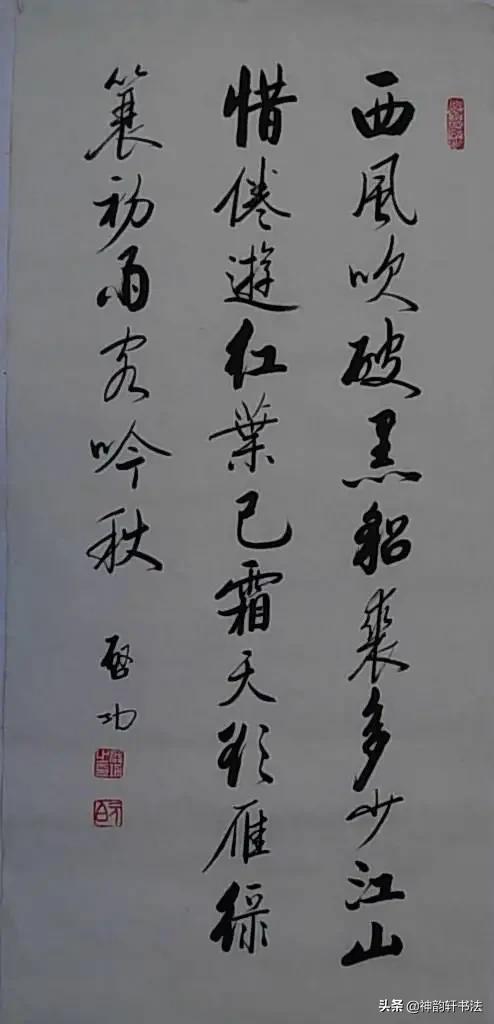 西風吹破黑貂裘多少江山
惜倦遊紅葉已霜天欲雁綠
簑初雨客吟秋
啓功
头条 @神韵轩书法